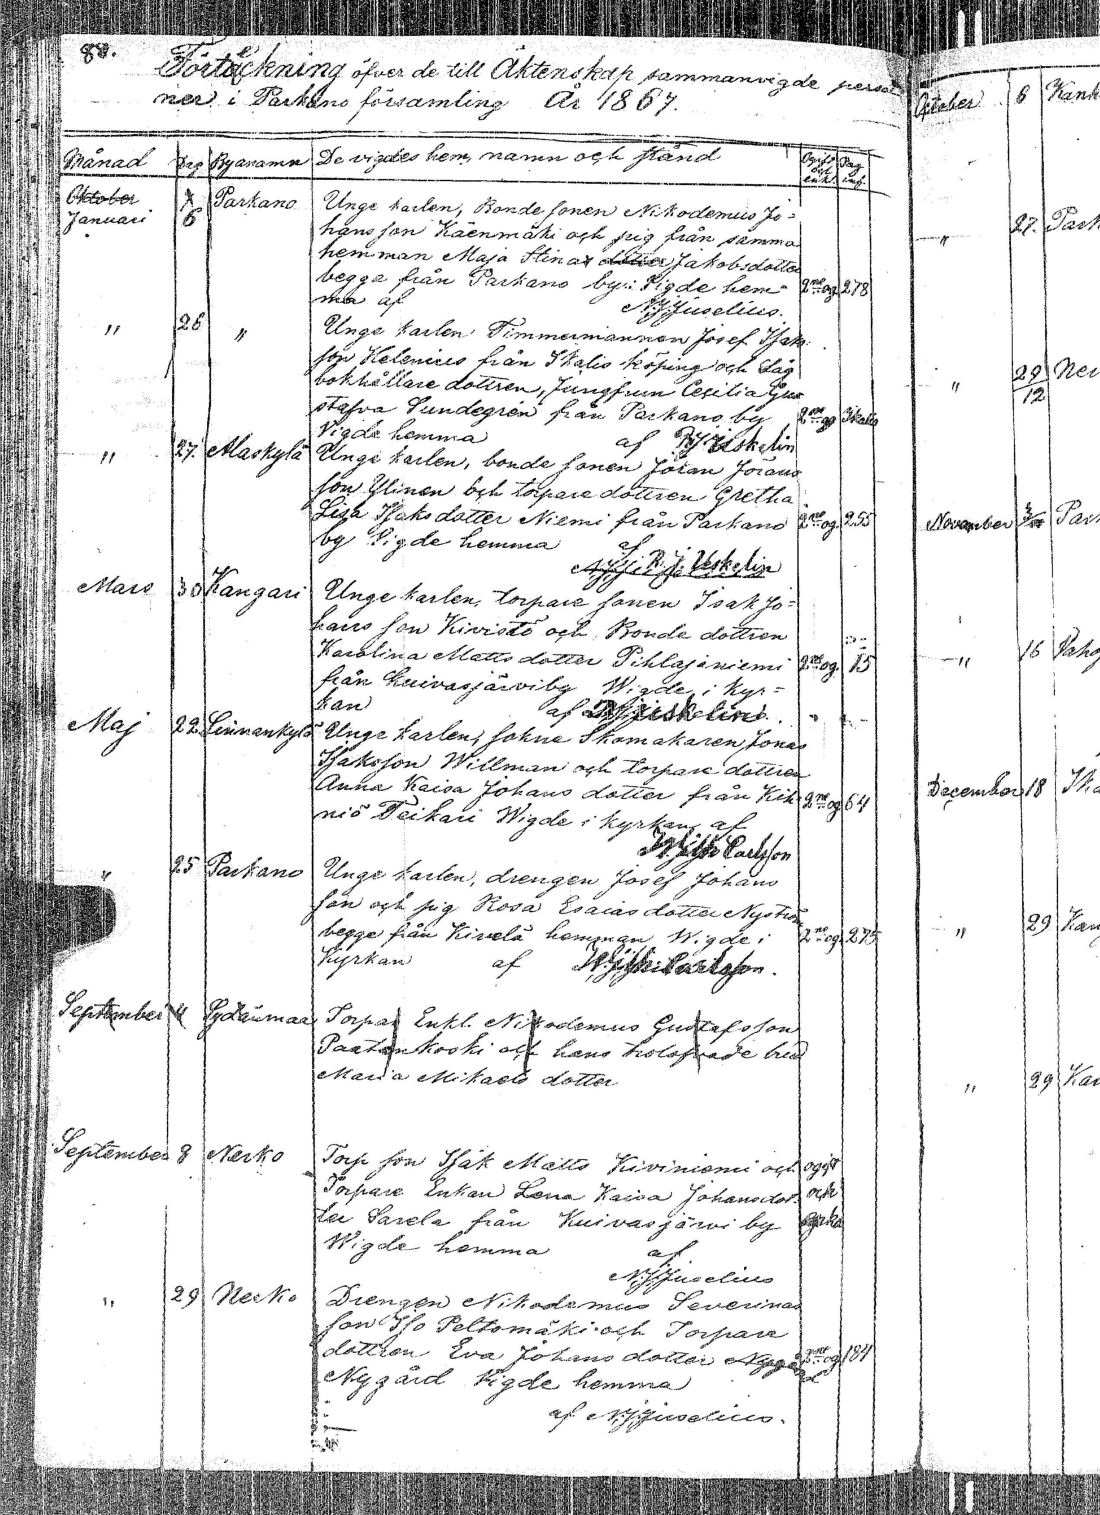 80.
Förteckning öfver de till Äktenskap sammanvigde perso
ner i Parkano församling År 1867.
Månad Dag Byanamn De vigdes hem, namn och stånd Ogift och enkl. Pag inf.
Oktober
Januari 6 Parkano Unge karlen, Bonde sonen Nikodemus Jo=
hans son Käenmäki och pig från samma
hemman Maja Stina dotter Jakobsdotter
begge från Parkano by: Vigde hem= 2ne og 278
ma af N.J. Juselius.
" 26 " Unge karlen Timmermannen Josef Isaks
son Helenius från Ikalis köping och Såg
bokhållare dottren, Jungfrun Cesilia Gus
stafva Sundegren från Parkano by 2ne og Ikalis
Vigde hemma af R.J. Uskelin
" 27. Alaskylä Unge karlen, bonde sonen Johan Johans
son Ylinen och torpare dottren Gretha
Lisa Isaks dotter Niemi från Parkano 2ne og. 255
by Vigde hemma af
R.J. Uskelin
Mars 30 Kangari Unge karlen, torpare sonen Isak Jo=
hans son Kivistö och Bonde dottren
Karolina Matts dotter Pihlajaniemi 2ne og. 15
från Kuivasjärvi by Wigde i Kyr=
kan af
Maj 22 Linnankylä Unge karlen, sokne Skomakaren Jonas
Isaksson Willman och torpare dottren
Anna Kaisa Johans dotter från Kih
niö Teikari Wigde i kyrkan af 2ne og 64
Carlsson
" 25 Parkano Unge karlen, drengen Josef Johans
son och pig Rosa Esaias dotter Nyström
begge från Kivelä hemman Wigde i 2ne og. 275
Kyrkan af Carlsson.
September 4 Sydänmaa Torpar Enkl. Nikodemus Gustafsson
Paatenkoski och hans trolofvade brud
Maria Mikaels dotter
September 8 Nerko Torp son Isak Matts Kiviniemi och ogift
Torpare Enkan Lena Kaisa Johansdot och
ter Sarela från Kuivasjärvi by
Wigde hemma af
N.J. Juselius
" 29 Nerko Drengen Nikodemus Severinus
son Iso Peltomäki och Torpare
dottren Eva Johans dotter 2ne og 184
Nygård Vigde hemma
af N.J. Juselius.
October 6 Kank
" 27. Park
" 29/12 Ner
November Par
" 16
December 18
" 29 Kan
" 29 Kar